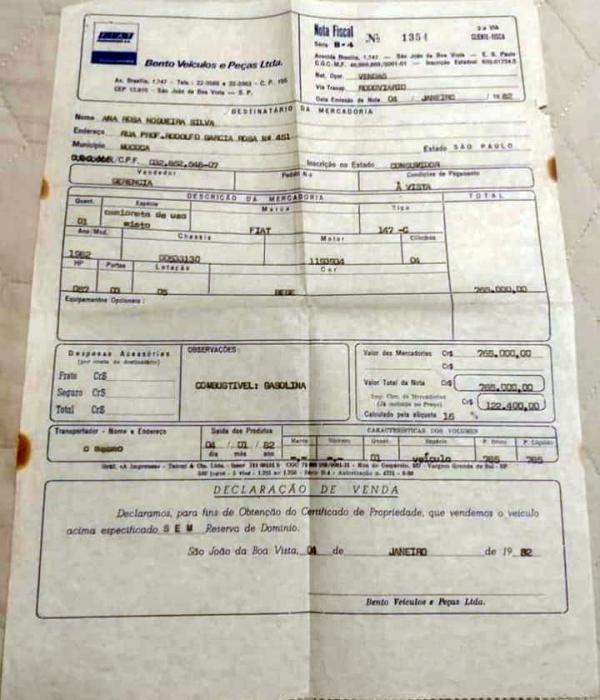 FIAT
Bento Veículos e Peças Ltda.
Av. Brasília, 1.747 - Tels.: 22-3588 e 22-2963 - C. P. 155
CEP 13.870 - São João da Boa Vista — S. P.
Nota Fiscal Nº 1354 2.a VIA
Série B-4 CLIENTE-FISCO
Avenida Brasília, 1.747 — São João da Boa Vista — E. S. Paulo
C.G.C.-M.F. Inscrição Estadual
Nat. Oper. VENDAS
Via Transp. RODOVIARIO
Data Emissão da Nota 04 / JANEIRO / 19 82
DESTINATÁRIO DA MERCADORIA
Nome ANA ROSA NOGUEIRA SILVA
Endereço RUA PROF.RODOLFO GARCIA ROSA Nº 451
Município MOCOCA Estado SÃO PAULO
/C.P.F. Inscrição no Estado CONSUMIDOR
Vendedor Pedido No Condições de Pagamento
GERENCIA À VISTA
DESCRIÇÃO DA MERCADORIA TOTAL
Quant. Espécie Marca Tipo
01 camioneta de uso misto FIAT 147 -C
Ano/Mod. Chassis Motor Cilindros
1982 00533130 04
HP Portas Lotação Cor
03 05 BEGE 765.000,00
Equipamentos Opcionais:
Despesas Acessórias
(por conta do destinatário)
Frete Cr$
Seguro Cr$
Total Cr$
OBSERVAÇÕES:
COMBUSTIVEL: GASOLINA
Valor das Mercadorias Cr$ 765.000,00
Cr$
Valor Total da Nota Cr$ 765.000,00
Imp. Circ. de Mercadorias
(Já incluído no Preço) Cr$ 122.400,00
Calculado pela alíquota 16 %
Transportador - Nome e Endereço
O
Saída dos Produtos
04 / 01 / 82
dia mês ano
CARACTERÍSTICAS DOS VOLUMES
Marca Número Quant. Espécie P. Bruto P. Líquido
01 veículo 765 765
DECLARAÇÃO DE VENDA
Declaramos, para fins de Obtenção do Certificado de Propriedade, que vendemos o veículo
acima especificado S E M Reserva de Domínio.
São João da Boa Vista, 04 de JANEIRO de 19 82
Bento Veículos e Peças Ltda.